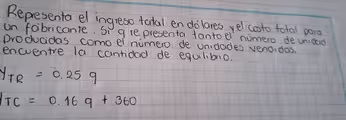 Representa el ingreso total en dólares y el costo total para
un fabricante. Si q representa tanto el número de unidad
producidas como el número de unidades vendidas,
encuentre la cantidad de equilibrio.
YTR = 0.25 q
YTC = 0.16 q + 360